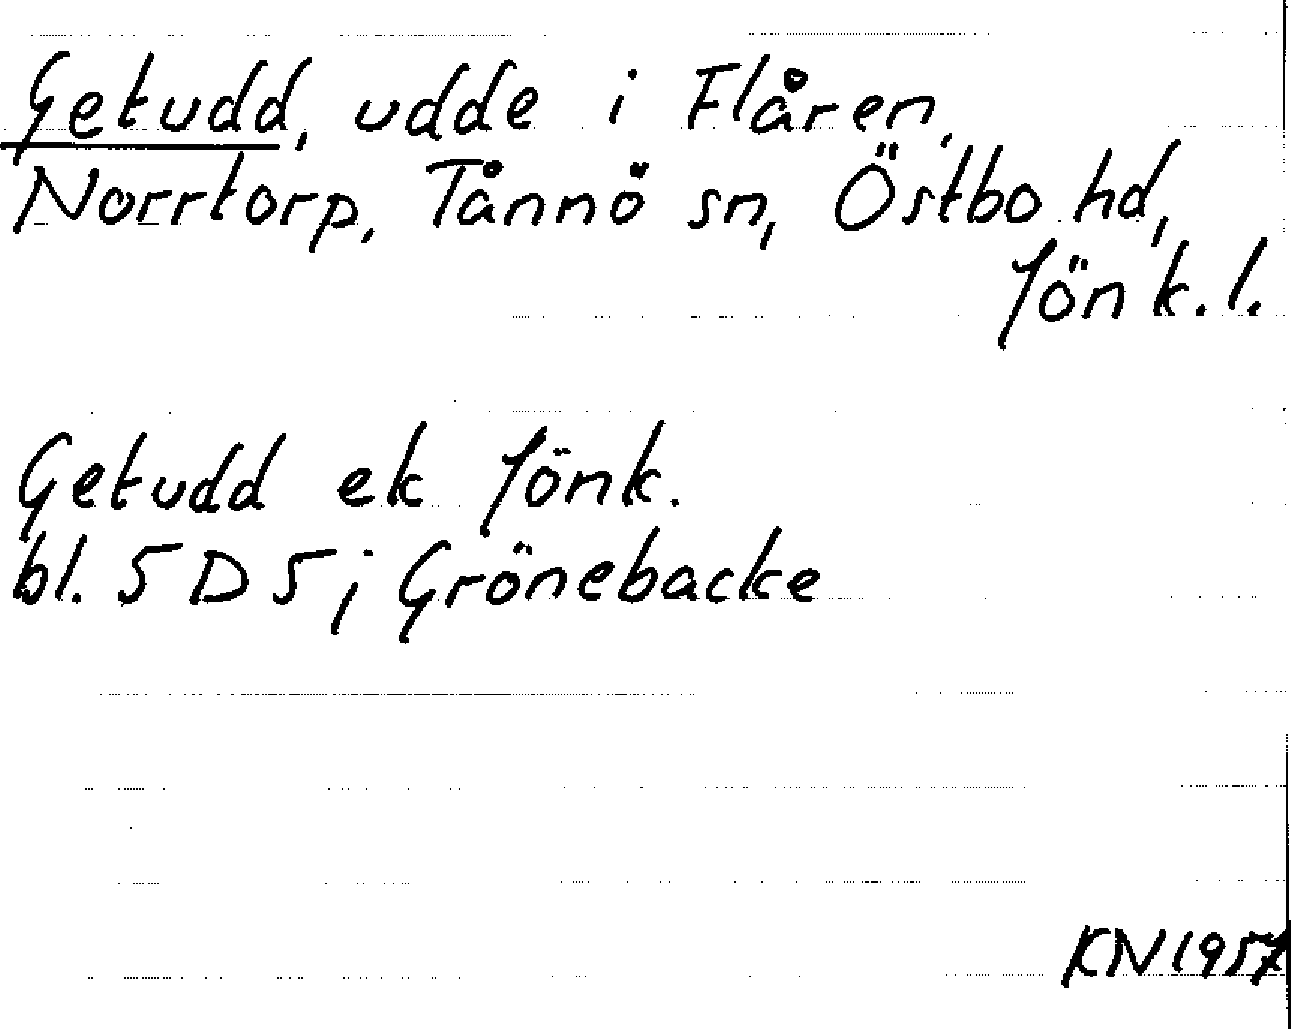 Getudd, udde i Flåren,
Norrtorp, Tånnö sn, Östbo hd,
Jönk. l.
Getudd ek Jönk.
bl. 5 D 5; Grönebacke
KN 1957